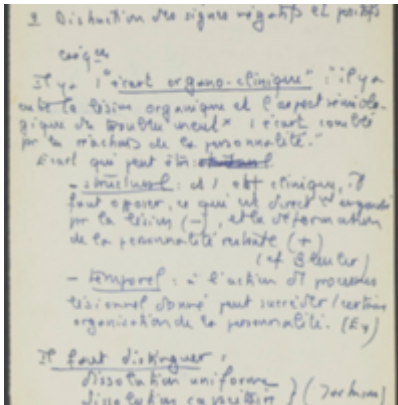 3. Distinction des signes négatifs et positifs
Il y a 1 "écart organo-clinique" : "il y a
entre la lésion organique et l'aspect
du trouble mental 1 écart comblé
par la réaction de la personnalité."
Écart qui peut être structural
- structural : d/ clinique, il
faut opposer, ce qui est direct
par la lésion (-), et la déformation
de la personnalité restante (+)
(cf Bleuler)
- temporel : à l'action du processus
lésionnel donné peut succéder 1 certaine
organisation de la personnalité. (Ey)
Il faut distinguer :
dissolution uniforme
dissolution } (Jackson)